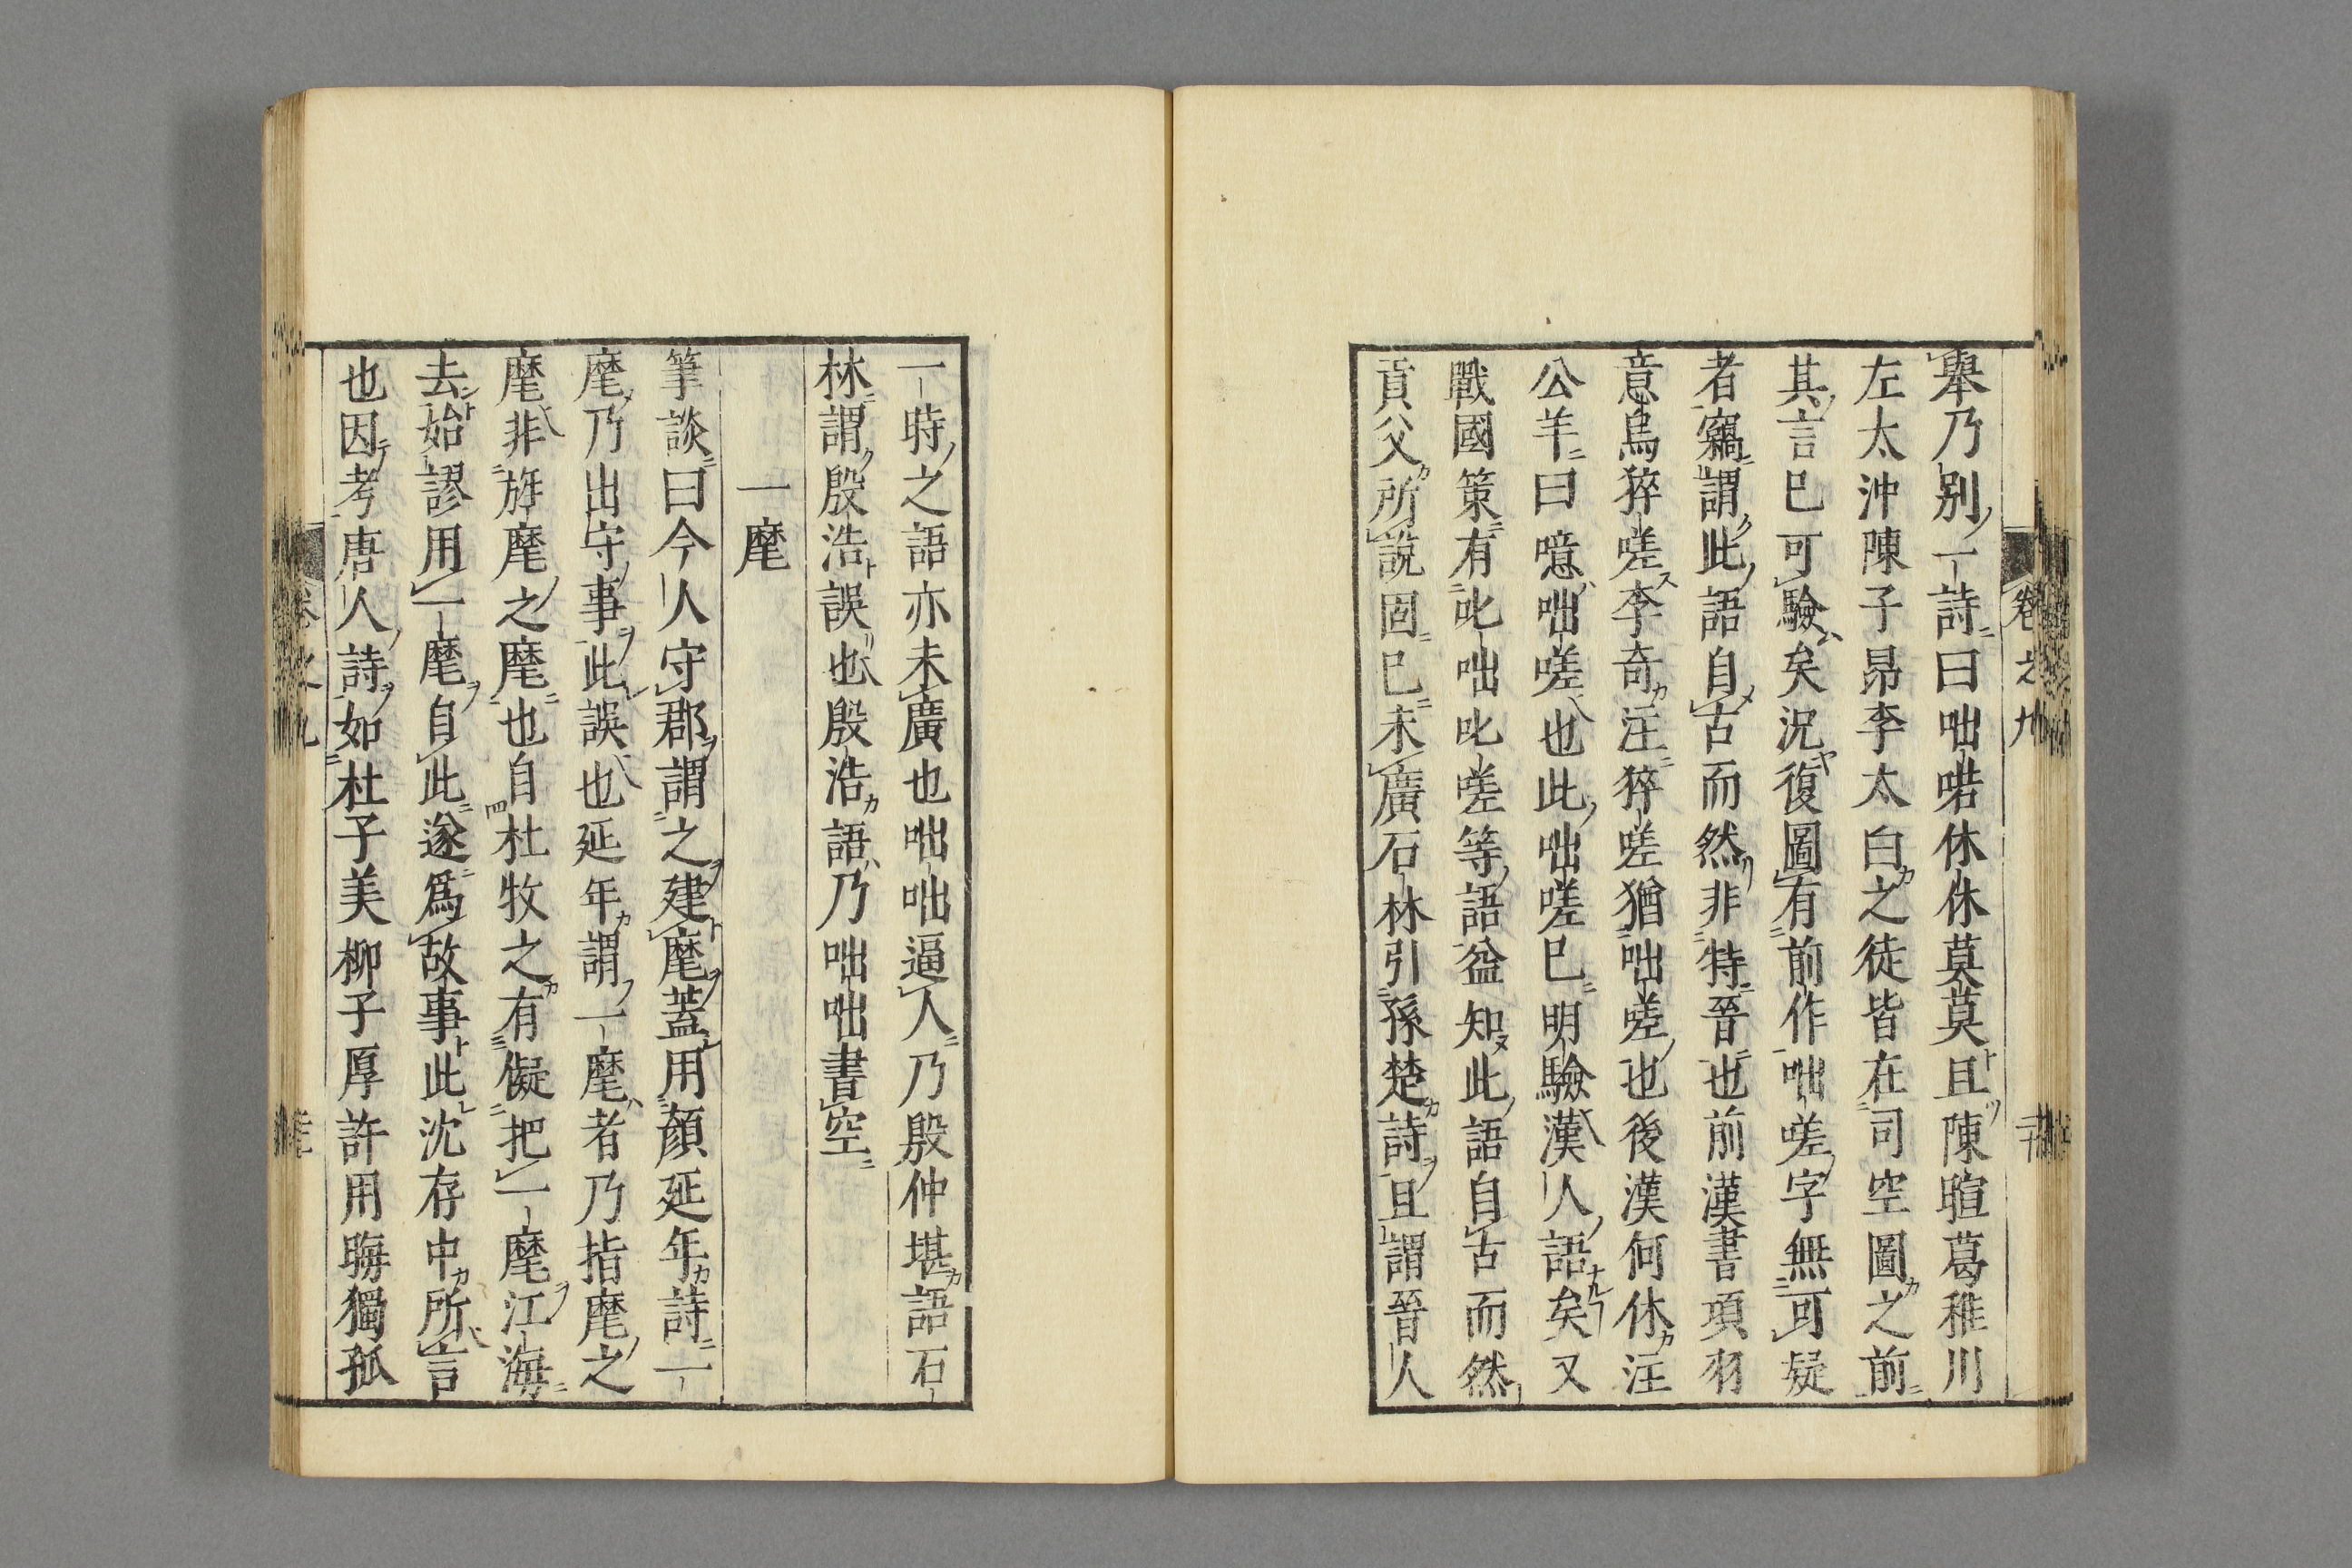 舉乃別一詩曰咄喏休休莫莫且陳暄葛稚川
左太沖陳子昻李太白之徒皆在司空圖之前
其言已可驗矣況復圖有前作咄嗟字無可疑
者竊謂此語自古而然非特晉也前漢書項羽
意烏猝嗟李竒注猝嗟猶咄嗟也後漢何休注
公羊曰噫咄嗟也此咄嗟已明驗漢人語矣又
戰國策有叱咄叱嗟等語益知此語自古而然
貢父所說固已未廣石林引孫楚詩且謂晉人
卷之九
二十
一時之語亦未廣也咄咄逼人乃殷仲堪語石
林謂殷浩誤也殷浩語乃咄咄書空
一麾
筆談曰今人守郡謂之建麾蓋用顏延年詩一
麾乃出守事此誤也延年謂一麾者乃指麾之
麾非旌麾之麾也自杜牧之有儗把一麾江海
去始謬用一麾自此遂爲故事此沈存中所言
也因考唐人詩如杜子美柳子厚許用晦獨孤
卷之九